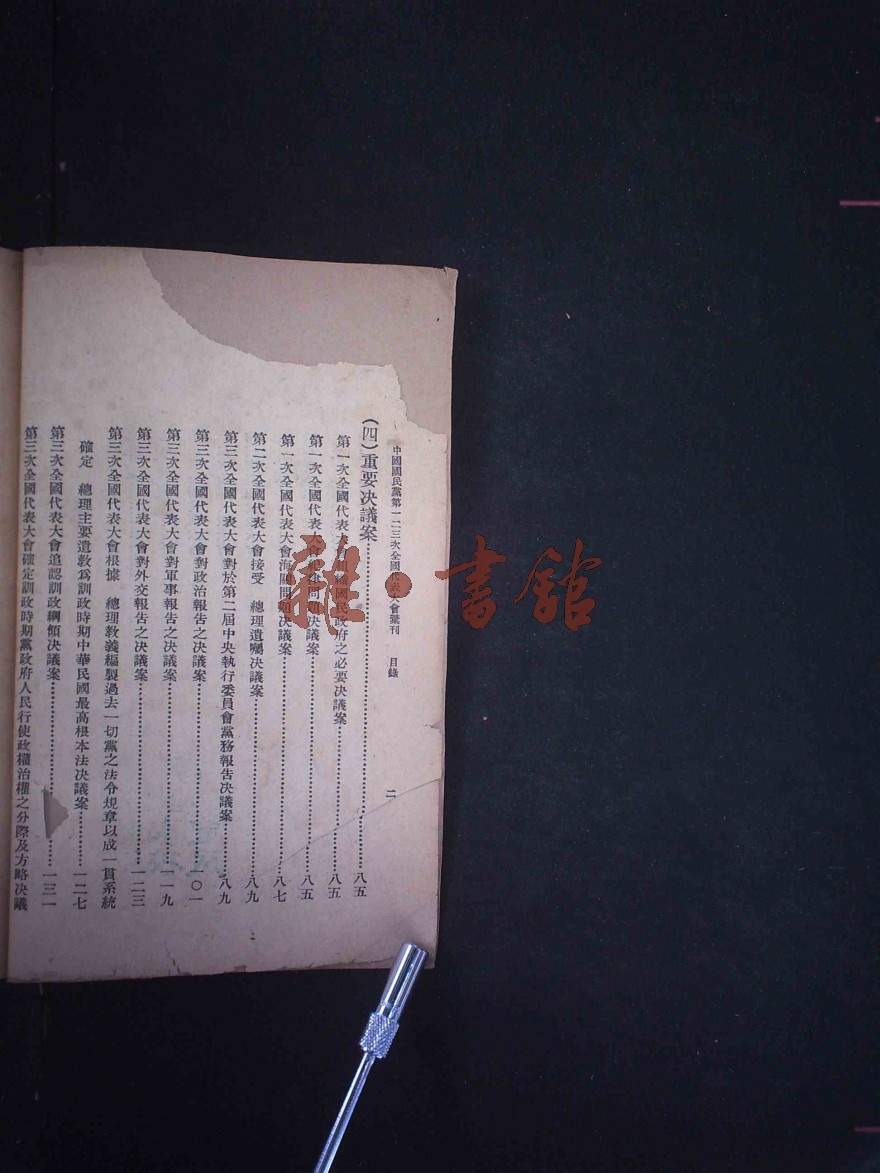 中國國民黨第一二三次全國代表大會彙刊 目錄 二
（四）重要决議案……八五
第一次全國代表大會組織國民政府之必要决議案……八五
第一次全國代表大會紀律問題决議案……八五
第一次全國代表大會海關問題决議案……八七
第二次全國代表大會接受 總理遺囑决議案……八九
第三次全國代表大會對於第二屆中央執行委員會黨務報告决議案……八九
第三次全國代表大會對政治報告之决議案……一〇一
第三次全國代表大會對軍事報告之决議案……一一九
第三次全國代表大會對外交報告之决議案……一二三
第三次全國代表大會根據 總理教義編製過去一切黨之法令規章以成一貫系統
確定 總理主要遺敎爲訓政時期中華民國最高根本法决議案……一二七
第三次全國代表大會追認訓政綱領决議案……一三一
第三次全國代表大會確定訓政時期黨政府人民行使政權治權之分際及方略决議
雜·書館